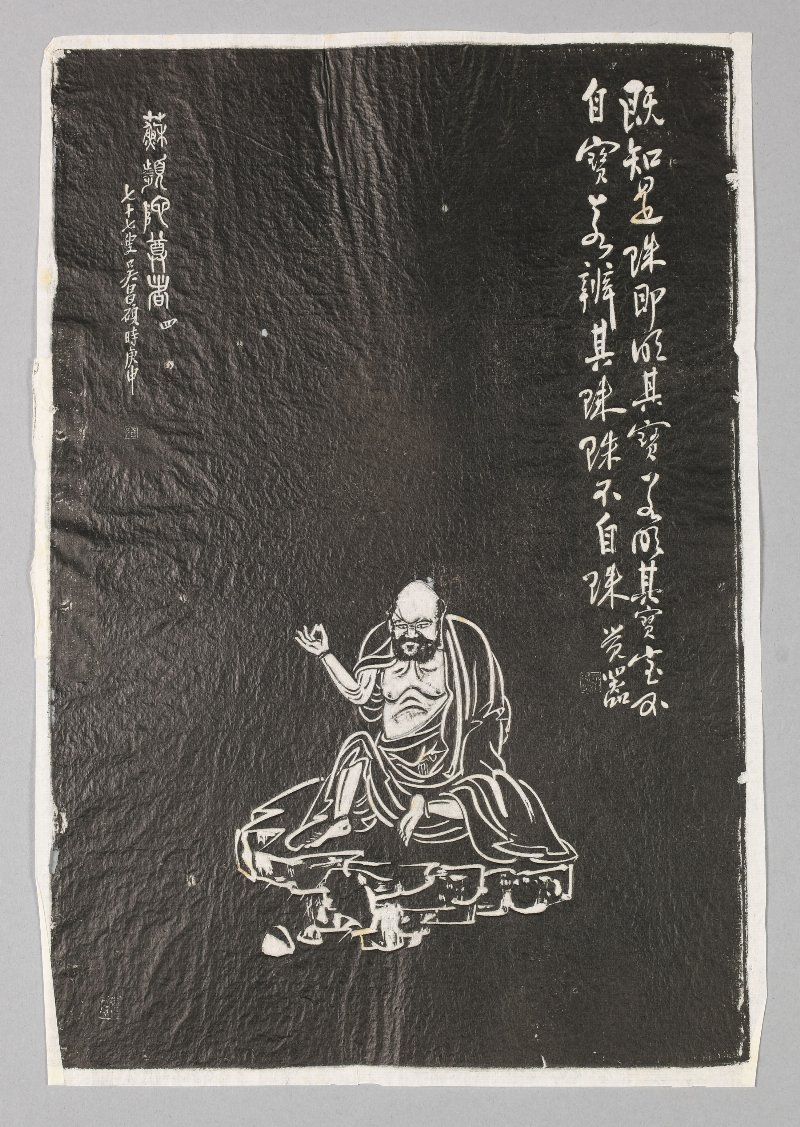 既知是珠即明其寶若明其寶宝不
自寶若辨其珠珠不自珠 覚器
蘇頻陁尊者 四
七十七叟吳昌碩時庚申